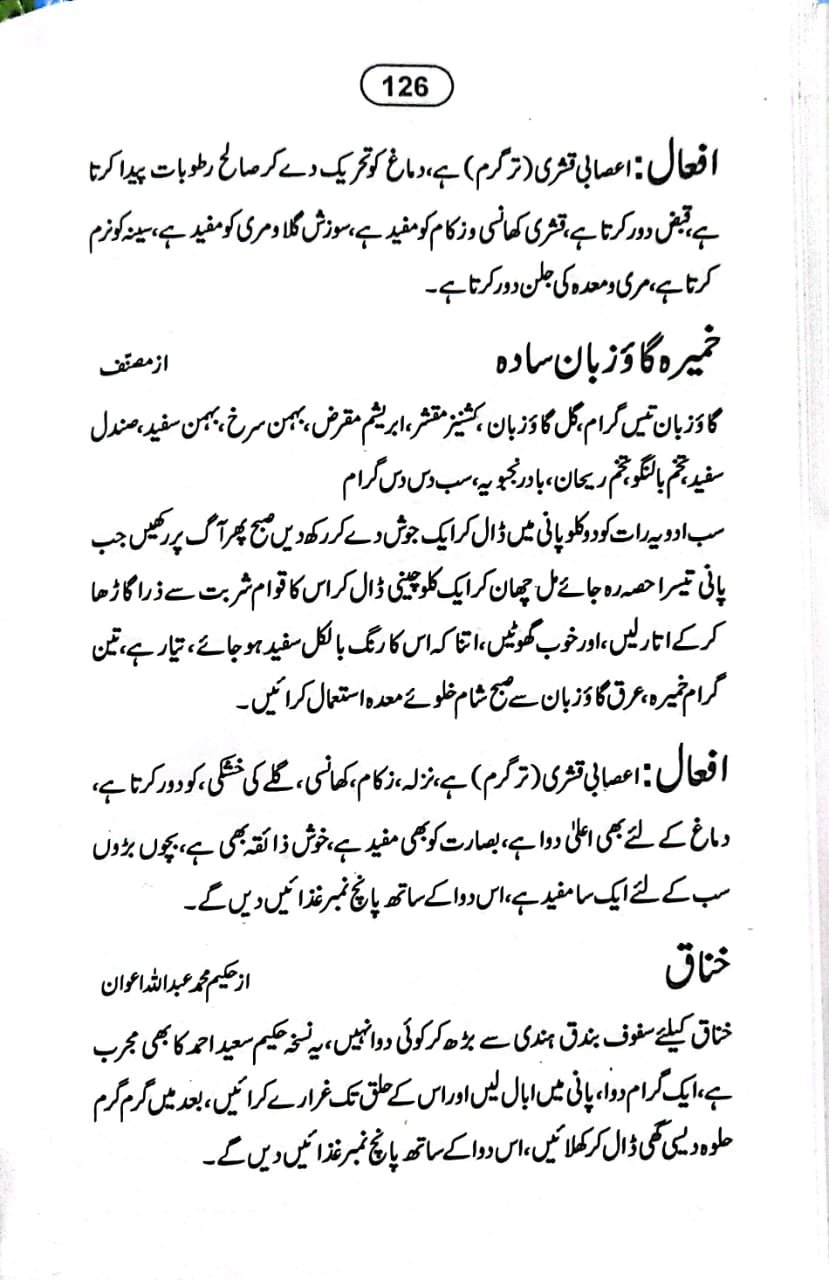 126
افعال: اعصابی قشری (تر گرم) ہے، دماغ کو تحریک دے کر صالح رطوبات پیدا کرتا
ہے، قبض دور کرتا ہے، قشری کھانسی و زکام کو مفید ہے، سوزش گلا و مری کو مفید ہے، سینہ کو نرم
کرتا ہے، مری و معدہ کی جلن دور کرتا ہے۔
خمیرہ گاؤزبان سادہ
از مصنّف
گاؤزبان تیس گرام، گل گاؤزبان، کشنیز مقشر، ابریشم مقرض، بہمن سرخ، بہمن سفید، صندل
سفید، تخم بالنگو، تخم ریحان، بادرنجبویہ، سب دس دس گرام
سب ادویہ رات کو دو کلو پانی میں ڈال کر ایک جوش دے کر رکھ دیں صبح پھر آگ پر رکھیں جب
پانی تیسرا حصہ رہ جائے مل چھان کر ایک کلو چینی ڈال کر اس کا قوام شربت سے ذرا گاڑھا
کر کے اتار لیں، اور خوب گھوٹیں، اتنا کہ اس کا رنگ بالکل سفید ہو جائے، تیار ہے، تین
گرام خمیرہ، عرق گاؤزبان سے صبح شام خلوئے معدہ استعمال کرائیں۔
افعال: اعصابی قشری (تر گرم) ہے، نزلہ، زکام، کھانسی، گلے کی خشکی، کو دور کرتا ہے،
دماغ کے لئے بھی اعلیٰ دوا ہے، بصارت کو بھی مفید ہے، خوش ذائقہ بھی ہے، بچوں بڑوں
سب کے لئے ایک سا مفید ہے، اس دوا کے ساتھ پانچ نمبر غذائیں دیں گے۔
خناق
از حکیم محمد عبداللہ اعوان
خناق کیلئے سفوف بندق ہندی سے بڑھ کر کوئی دوا نہیں، یہ نسخہ حکیم سعید احمد کا بھی مجرب
ہے، ایک گرام دوا، پانی میں ابال لیں اور اس کے حلق تک غرارے کرائیں، بعد میں گرم گرم
حلوہ دیسی گھی ڈال کر کھلائیں، اس دوا کے ساتھ پانچ نمبر غذائیں دیں گے۔